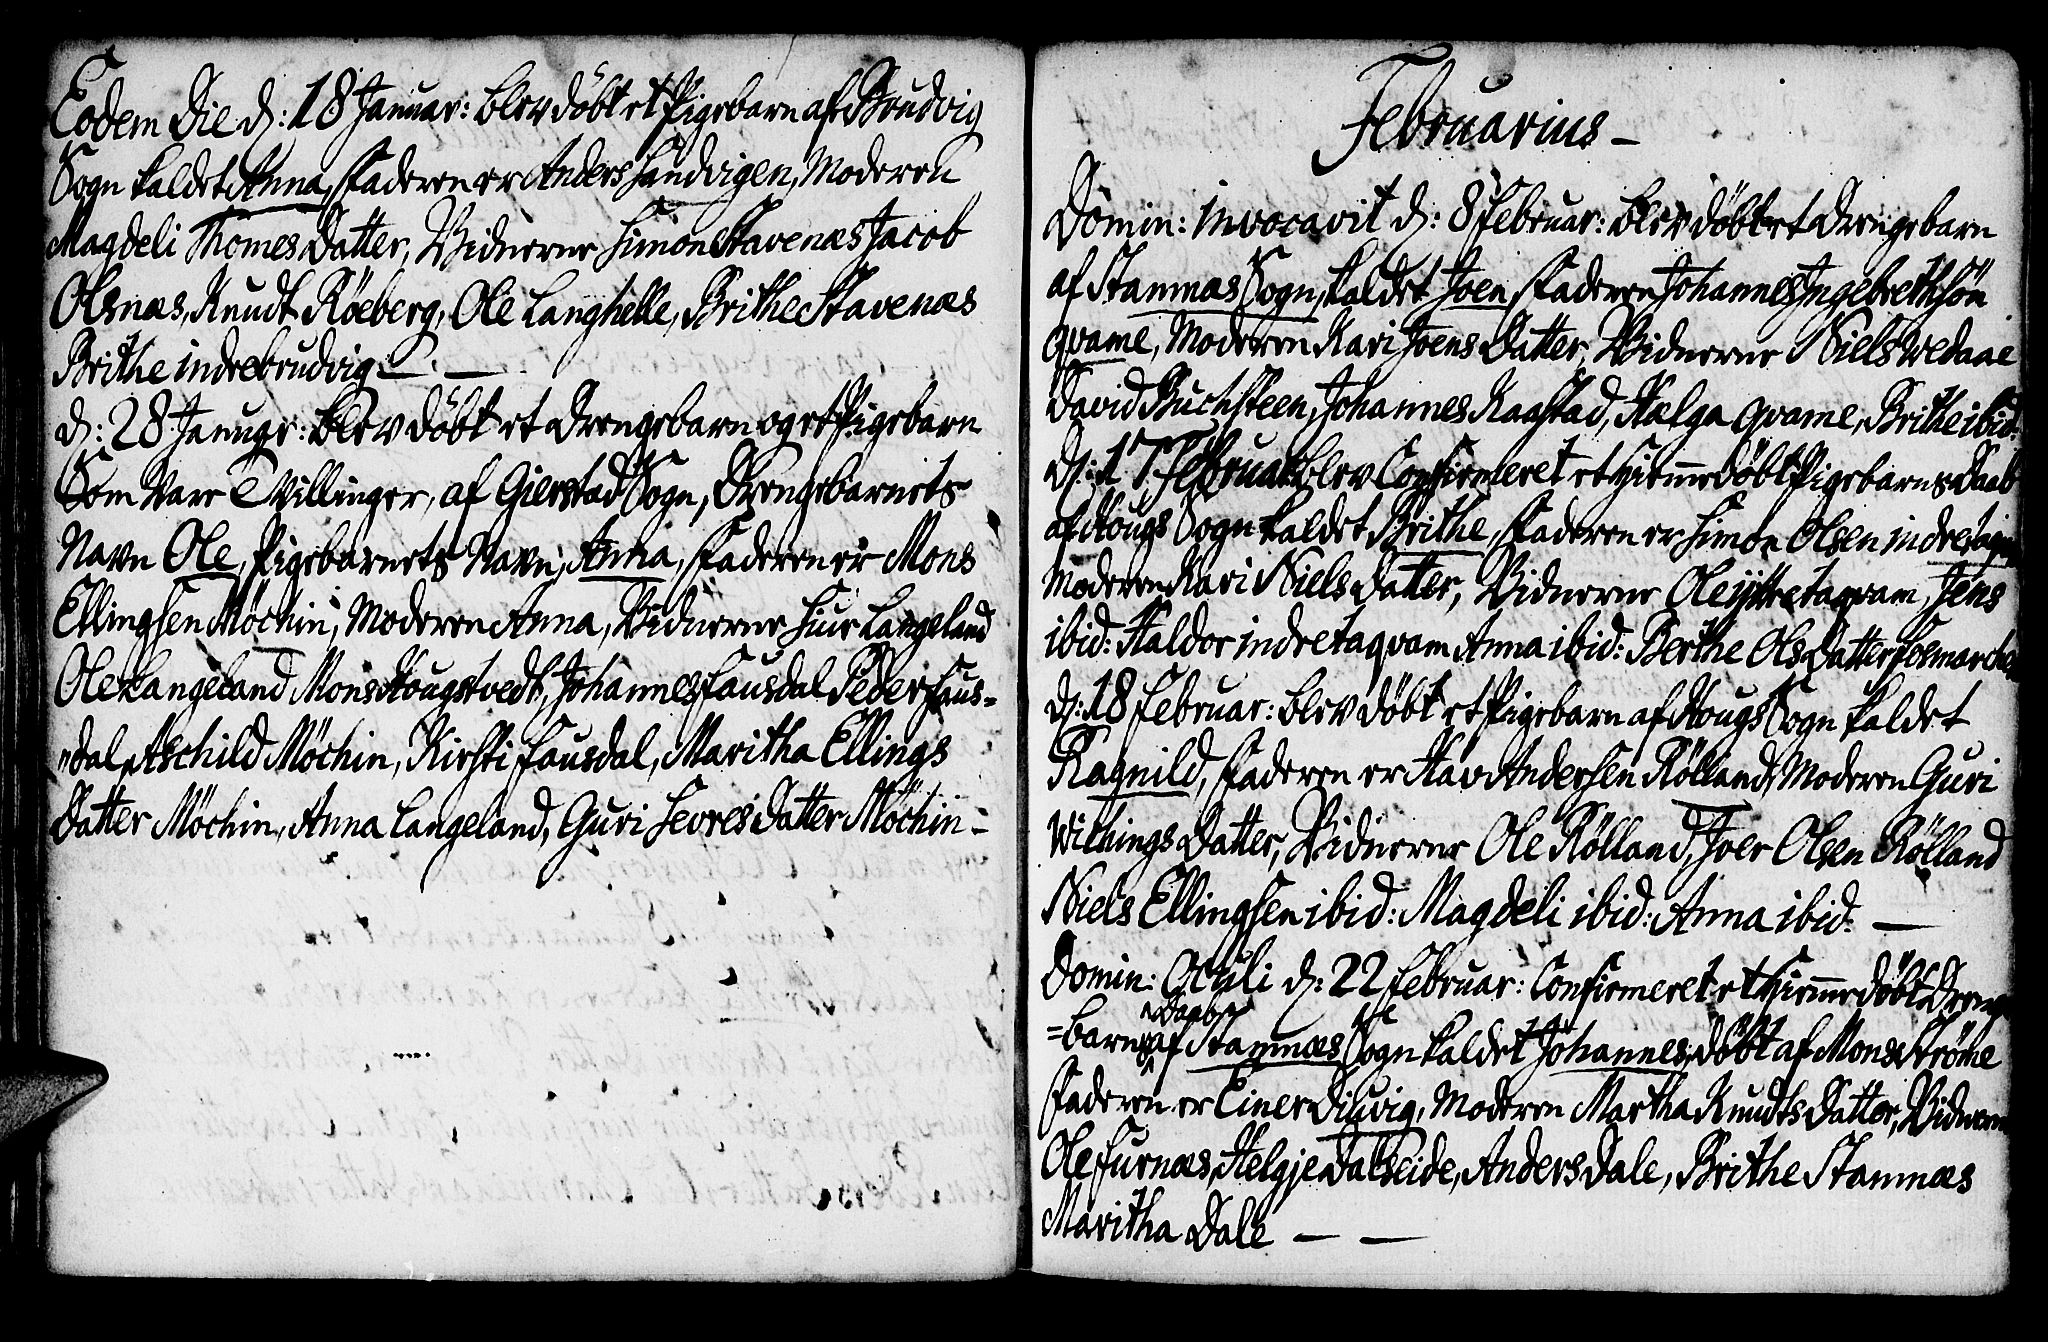 Eodem Die d: 18 Januar: blev döbt et Pigebarn af Brudvig
Sogn kaldet Anna, Faderen er Anders Sandvigen, Moderen
Magdeli Thomes Datter, Vidnerne Simon Stavenæs Jacob
Olsnæs, Knudt Röeberg, Ole Langhelle, Brithe Stavenæs
Brithe indrebrudvig. —
d: 28 Januar: blev döbt et Drengebarn og et Pigebarn
Som Vare Tvillinger, af Gierstad Sogn, Drengebarnets
Navn Ole, Pigebarnets Navn, Anna, Faderen er Mons
Ellingsen Möchin, Moderen Anna, Vidnerne Siur Langeland
Ole Langeland Mons Hougstvedt, Johannes Fausdal Peder Faus-
"dal, Aschild Möchin, Kirsti Fausdal, Maritha Ellings
Datter Möchin, Anna Langeland, Guri Sevres Datter Möchin -
Februarius -
Domin: invocavit d: 8 Februar: blev döbt et Drengebarn
af Stamnæs Sogn, kaldet Joen, Faderen Johannes Ingebrethsön
qvame, Moderen Kari Joens Datter, Vidnerne Niels Vedaae
David Buchsteen, Johannes Kaastad, Hælga qvame, Brithe ibid:
d: 17 Februar: blev Confirmeret et hiemmedöbt Pigebarns Daab
af Hougs Sogn kaldet Brithe, Faderen er Simon Olsen indretaqvam
Moderen Kari Niels Datter, Vidnerne Ole ÿttretaqvam, Jens
ibid: Haldor indretaqvam Anna ibid: Berthe Ols Datter Fosmarchen
d: 18 Februar: blev döbt et Pigebarn af Hougs Sogn kaldet
Ragnild, Faderen er Hav Andersen Rölland, Moderen Guri
Wichings Datter, Vidnerne Ole Rölland, Joer Olsen Rölland
Niels Ellingsen ibid: Magdeli ibid: Anna ibid: —
Domin: Oculi d: 22 Februar: Confirmeret et hiemmedöbt Drenge
=barns Daab af Stamnæs Sogn kaldet Johannes, döbt af Mons Ströme
Faderen er Einer Diuvig, Moderen Martha Knudts Datter, Vidnerne
Ole Furnæs, Helgje Dalseide, Anders Dale, Brithe Stamnæs
Maritha Dale — —